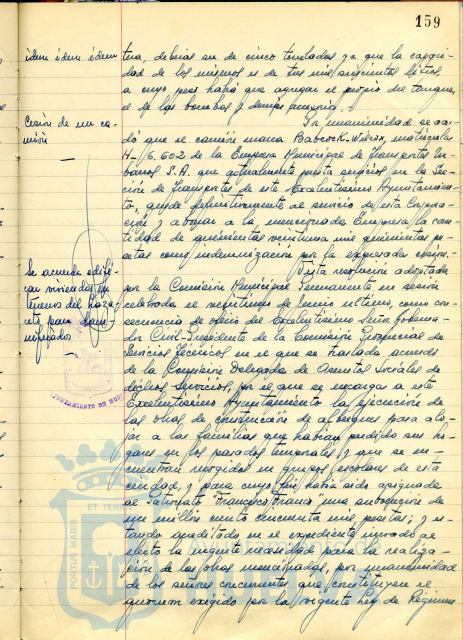 159
idem idem idem
tura, debería ser de cinco toneladas ya que la capaci-
dad de los mismos es de tres mil quinientos litros,
a cuyo peso habrá que agregar el propio del tanque,
el de las bombas y demás accesorios.
Cesión de un ca-
mión
Por unanimidad se acor-
dó que el camión marca Babcock-Wilcox, matrícula
H-6.602 de la Empresa Municipal de Transportes Ur-
banos S.A. que actualmente presta servicios en la Sec-
ción de Transportes de este Excelentísimo Ayuntamien-
to, quede definitivamente al servicio de esta Corpora-
ción y abonar a la mencionada Empresa la can-
tidad de quinientas veintiuna mil quinientas pe-
setas como indemnización por la expresada cesión.
Se acuerda edifi-
car viviendas en
terrenos del Laza-
reto para dam-
nificados
Vista resolución adoptada
por la Comisión Municipal Permanente en sesión
celebrada el veintiuno de Junio último, como con-
secuencia de oficio del Excelentísimo Señor Goberna-
dor Civil-Presidente de la Comisión Provincial de
Servicios Técnicos en el que se traslada acuerdo
de la Comisión Delegada de Asuntos Sociales de
dichos Servicios, por el que se encarga a este
Excelentísimo Ayuntamiento la ejecución de
las obras de construcción de albergues para alo-
jar a las familias que habían perdido sus ho-
gares en los pasados temporales y que se en-
cuentran recogidas en grupos escolares de esta
ciudad, y para cuyo fin había sido asignada
al Patronato "Francisco Franco" una subvención de
un millón ciento cincuenta mil pesetas; y es-
tando acreditado en el expediente incoado al
efecto la urgente necesidad para la realiza-
ción de las obras mencionadas, por unanimidad
de los señores concurrentes que constituyen el
quorum exigido por la vigente Ley de Régimen
AYUNTAMIENTO DE HUELVA
PORTUS MARIS
ET TERRAE